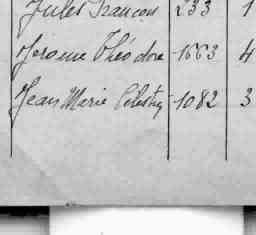 Jules François 233 1
Jérome Théodore 1663 4
Jean Marie Célestin 1082 3